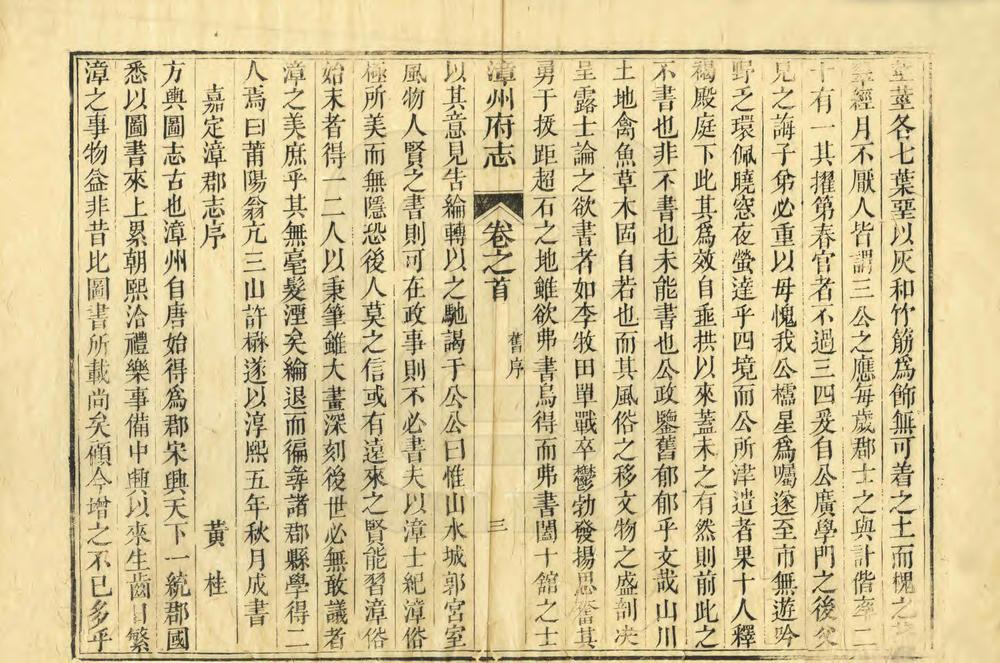 莖莖各七葉堊以灰和竹筋為飾無可着之土而槐之
經月不厭人皆謂三公之應每歲郡士之與計偕率二
十有一其擢第春官者不過三四爰自公廣學門之後父
見之誨子弟必重以毋愧我公檽星為囑遂至市無遊吟
野乏環佩曉窓夜螢達乎四境而公所津遣者果十人釋
褐殿庭下此其為效自垂拱以來蓋未之有然則前此之
不書也非不書也未能書也公政鑒舊郁郁乎文哉山川
土地禽魚草木固自若也而其風俗之移文物之盛剖决
呈露士論之欲書者如李牧田單戰卒鬱勃發揚思奮其
勇于拔距超石之地雖欲弗書烏得而弗書闔十舘之士
漳州府志 卷之首 舊序 三
以其意見告綸轉以之馳謁于公公曰惟山水城郭宮室
風物人賢之書則可在政事則不必書夫以漳士紀漳俗
極所美而無隱恐後人莫之信或有遠來之賢能習漳俗
始末者得一二人以秉筆雖大畫深刻後世必無敢議者
漳之美庶乎其無毫髮湮矣綸退而徧尋諸郡縣學得二
人焉曰莆陽翁亢三山許楙遂以淳熙五年秋月成書
嘉定漳郡志序 黃桂
方輿圖志古也漳州自唐始得為郡宋興天下一統郡國
悉以圖書來上累朝熙洽禮樂事備中興以來生齒日繁
漳之事物益非昔比圖書所載尚矣顧今增之不已多乎